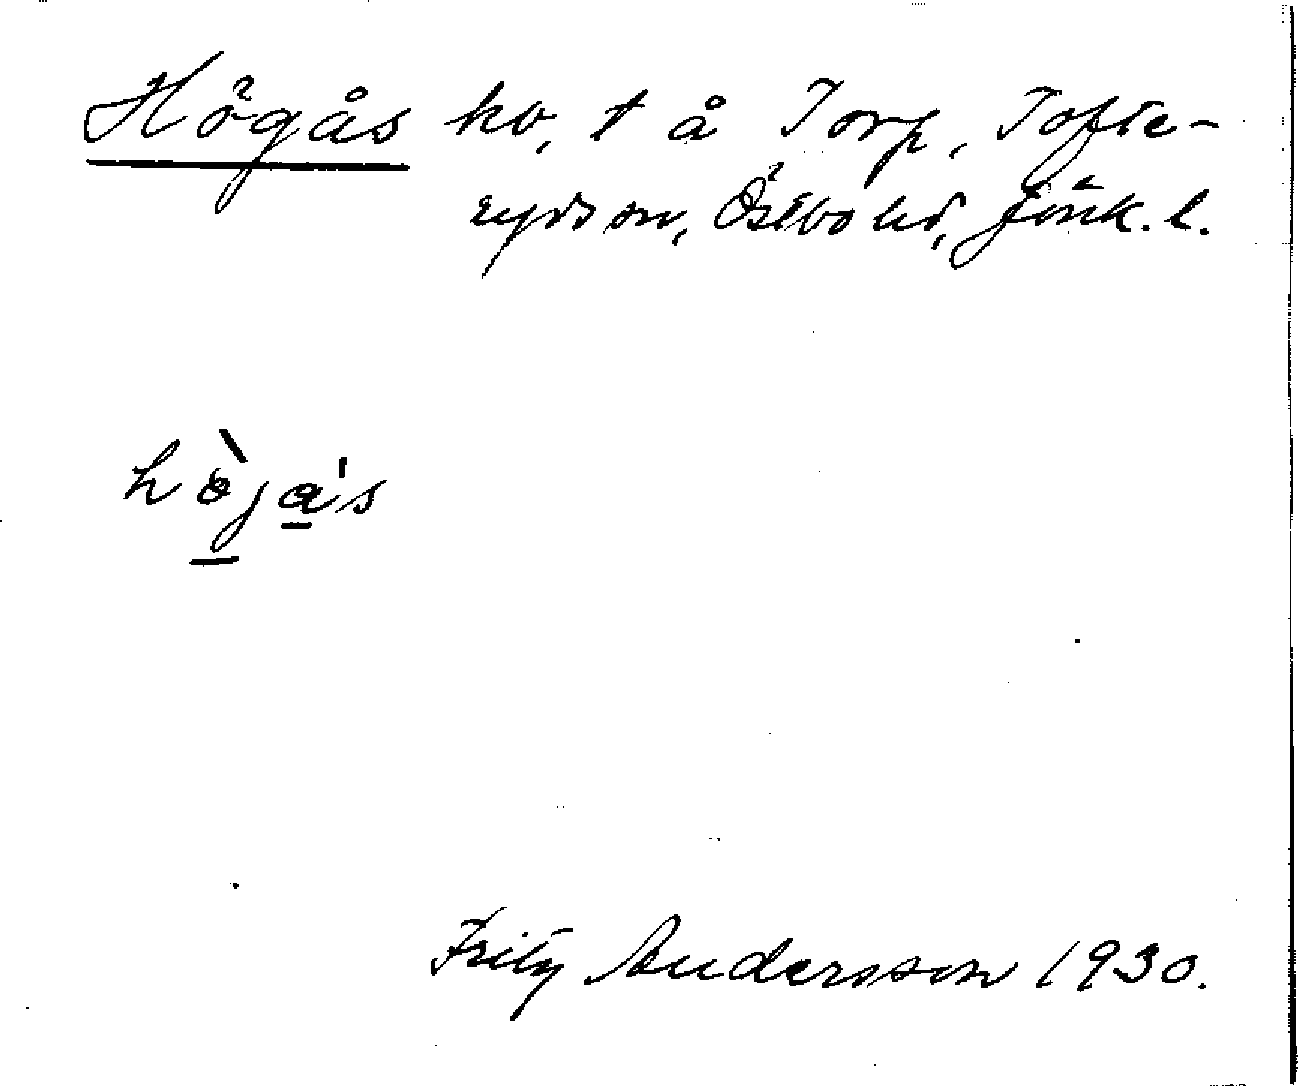 Högås hv, t å Torp, Tofte-
ryds sn, Östbo hd, Jönk. l.
högas
Fritz Andersson 1930.